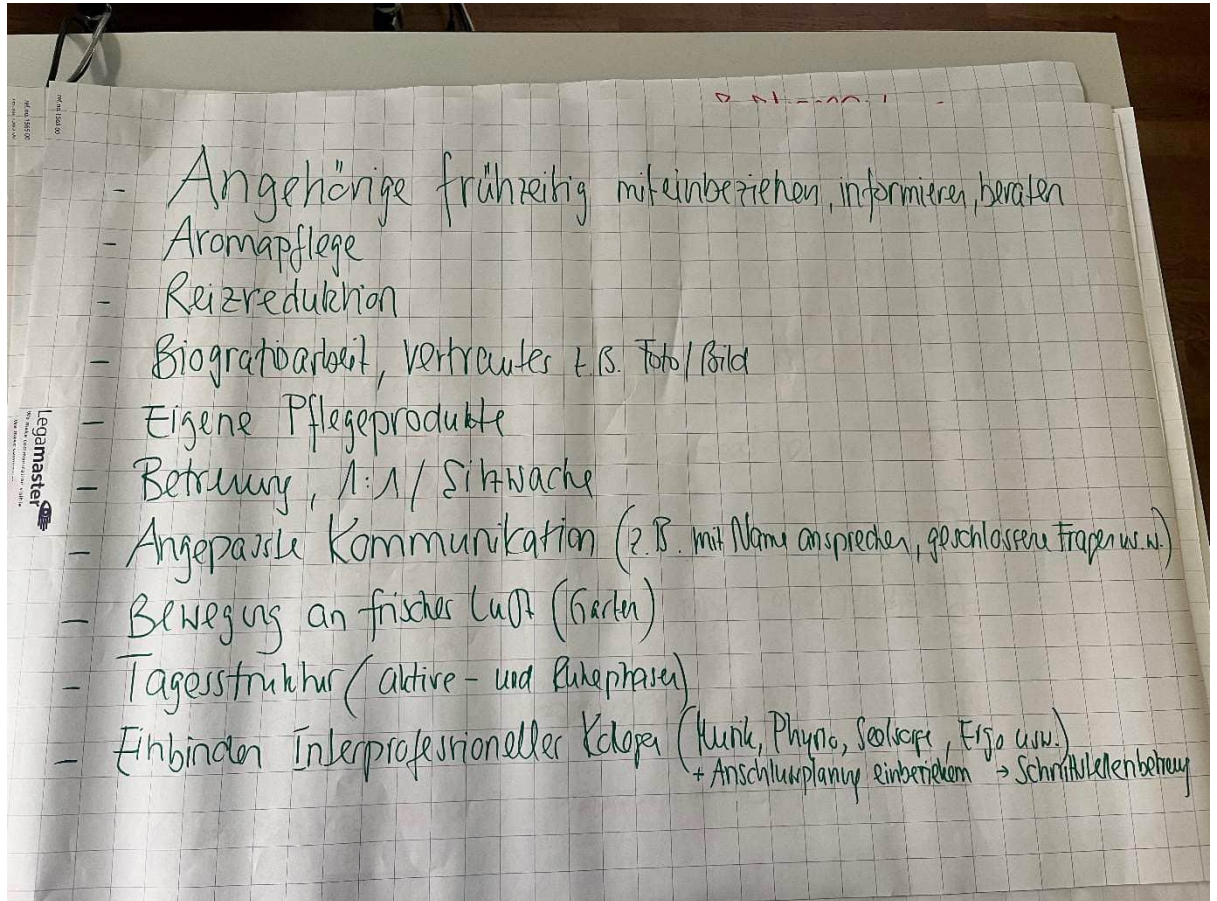 - Angehörige frühzeitig miteinbeziehen, informieren, beraten
- Aromapflege
- Reizreduktion
- Biografiearbeit, vertrautes z.B. Foto/Bild
- Eigene Pflegeprodukte
- Betreuung, 1:1 / Sitzwache
- Angepasste Kommunikation (z.B. mit Name ansprechen, geschlossene Fragen u.s.w.)
- Bewegung an frischer Luft (Garten)
- Tagesstruktur (aktive- und Ruhephasen)
- Einbinden Interprofessioneller (Physio, Seelsorge, Ergo usw.)
+ Anschlussplanung einbeziehen → Schnittstellen
Legamaster
ref.no. 1565 00